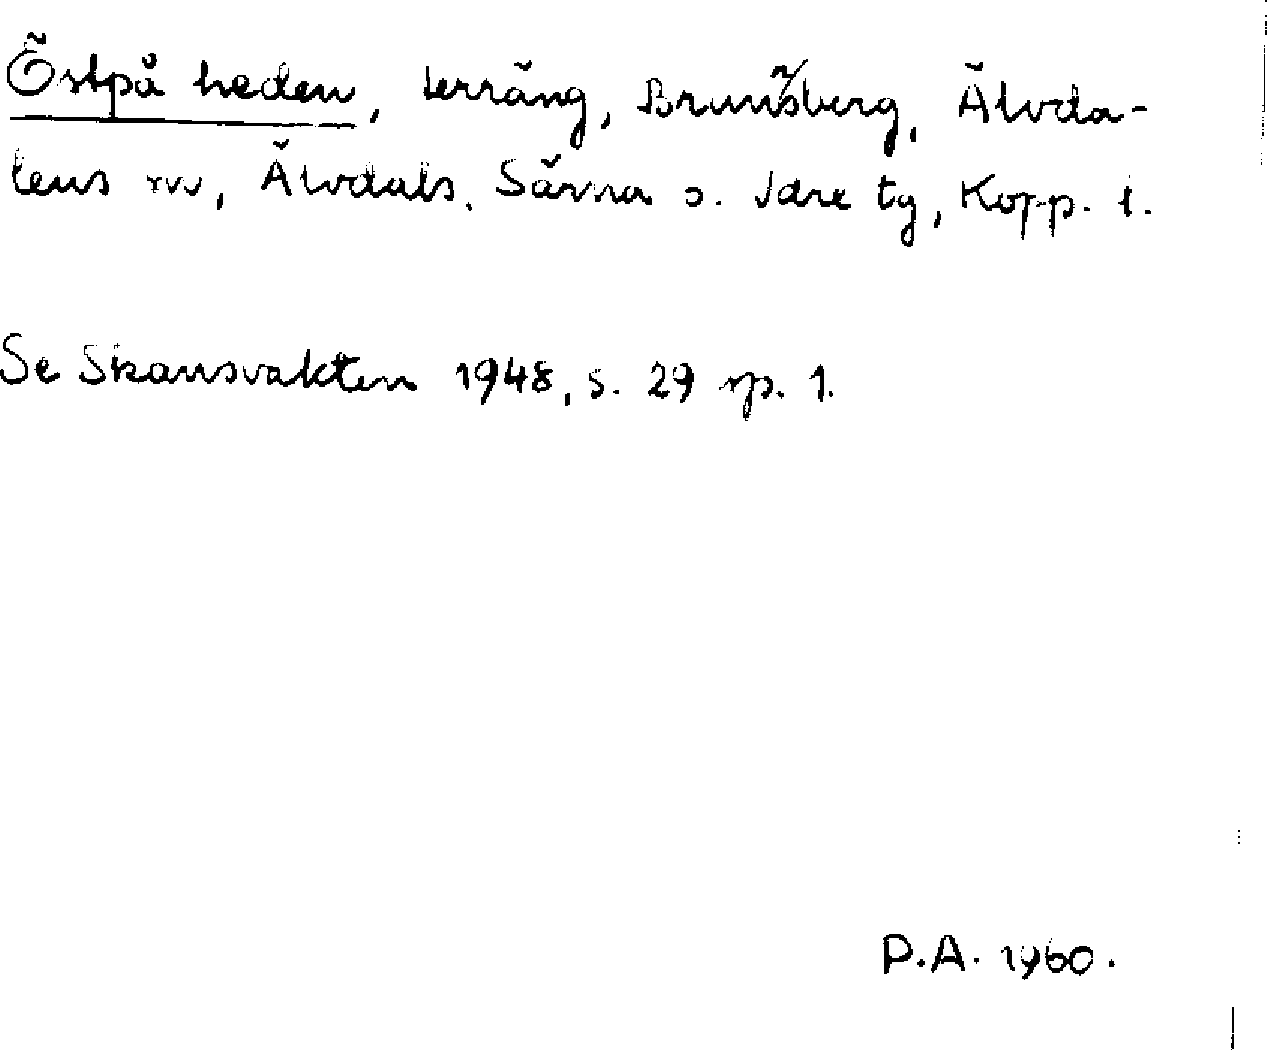 Östpå heden, terräng, Brunnsberg, Älvda-
lens sn, Älvdals, Särna o. Idre tg, Kopp. l.
Se Skansvakten 1948, s. 29 sp. 1.
P.A. 1960.